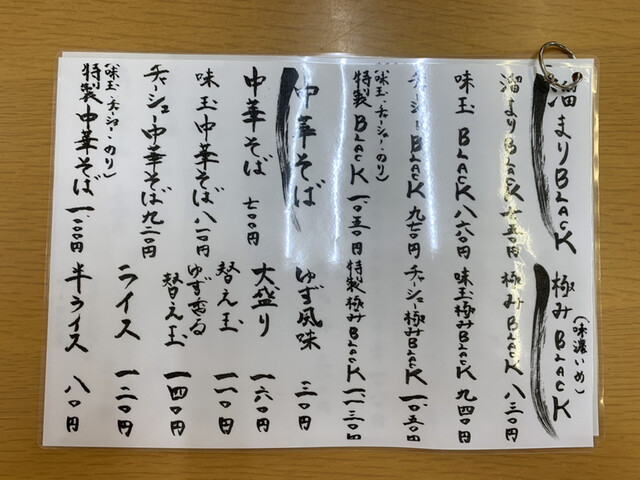 溜まりBLACK
溜まりBLACK 七五〇円
味玉BLACK 八六〇円
チャーシューBLACK 九七〇円
特製BLACK 一、〇五〇円
(味玉・チャーシュー・のり)
中華そば
中華そば 七〇〇円
味玉中華そば 八一〇円
チャーシュー中華そば 九二〇円
特製中華そば 一、〇〇〇円
(味玉・チャーシュー・のり)
(味濃いめ)
極みBLACK
極みBLACK 八三〇円
味玉極みBLACK 九四〇円
チャーシュー極みBLACK 一、〇五〇円
特製極みBLACK 一、一三〇円
ゆず風味 三〇円
大盛り 一六〇円
替え玉 一一〇円
ゆず香る
替え玉 一四〇円
ライス 一二〇円
半ライス 八〇円